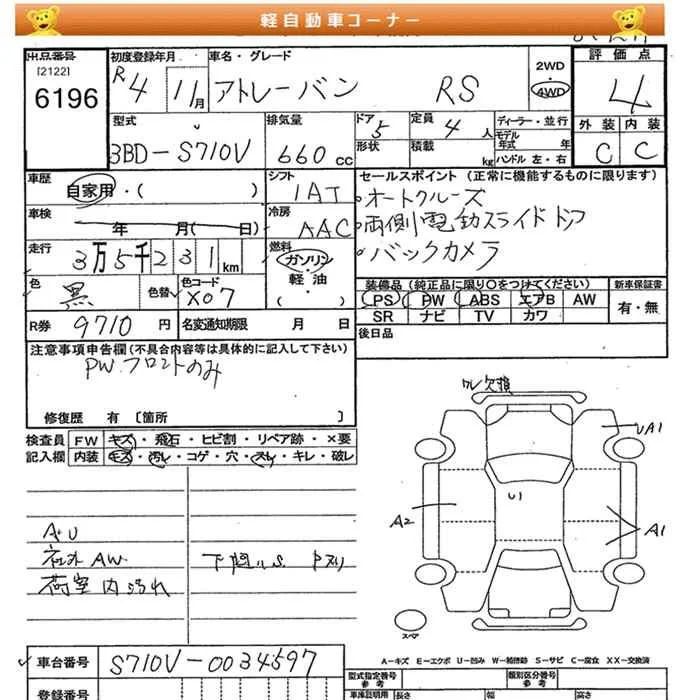 軽自動車コーナー
出品番号
[2122]
6196
初度登録年月
R4 11月
車名・グレード
アトレーバン RS
2WD
4WD
評価点
4
型式
3BD-S710V
排気量
660cc
ドア 5
形状
定員 4人
積載 kg
ディーラー・並行
モデル年式 年
ハンドル 左・右
外装 内装
C C
車歴
自家用・( )
シフト
IAT
セールスポイント (正常に機能するものに限ります)
オートクルーズ
両側電動スライドドア
バックカメラ
車検
年 月( 日)
冷房
AAC
走行
3万5千231km
燃料
ガソリン
軽・油
( )
色
黒
色替
色コード
X07
装備品 (純正品に限り○をつけてください)
PS PW ABS エアB AW
SR ナビ TV カワ
新車保証書
有・無
R券 9710円
名変通知期限 月 日
後日品
注意事項申告欄 (不具合内容等は具体的に記入して下さい)
PW.フロントのみ
修復歴 有 [箇所 ]
検査員 FW キズ・飛石・ヒビ割・リペア跡・×要
記入欄 内装 キズ・汚レ・コゲ・穴・スレ・キレ・破レ
ワレ欠損
UA1
U1
A2
A1
スペア
A・U
社外AW
荷室内汚れ
車台番号 S710V-0034597
登録番号
A－キズ E－エクボ U－凹み W－補修跡 S－サビ C－腐食 XX－交換済
型式指定番号
参考
類別区分番号
参考
車庫証明用 長さ 幅 高さ